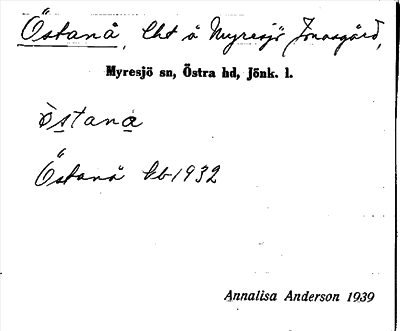 Östanå, lht å Myresjö Jonasgård,
Myresjö sn, Östra hd, Jönk. l.
östana
Östanå kb 1932
Annalisa Anderson 1939